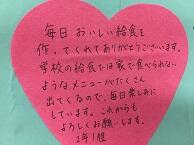 毎日 おいしい給食を
作ってくれてありがとうございます。
学校の給食では家で食べられない
ようなメニューがたくさん
出てくるので、毎日楽しみに
しています。これからも
よろしくお願いします。
2年1組